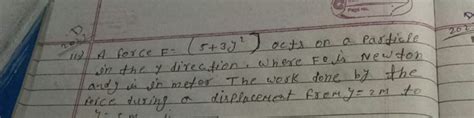 iii) A force F = (5+3y²) acts on a Particle
in the y direction, where F is Newton
and y is in meter The work done by the
force during a displacement from y = 2m to